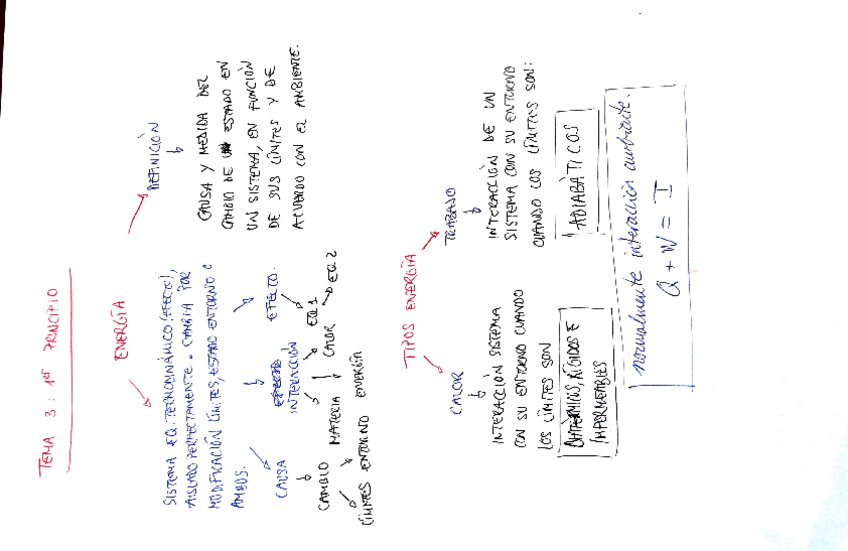 TEMA 3: 1er PRINCIPIO
ENERGÍA
SISTEMA EQ. TERMODINÁMICO (EFECTO),
AISLADO PERFECTAMENTE. CAMBIA POR
MODIFICACIÓN LÍMITES, ESTADO ENTORNO O
AMBOS.
CAUSA
INTERACCIÓN
EFECTO.
CAMBIO
MATERIA
CALOR
EQ 1
EQ 2
LÍMITES ENTORNO ENERGÍA
DEFINICIÓN
CAUSA Y MEDIDA DEL
CAMBIO DE ESTADO EN
UN SISTEMA, EN FUNCIÓN
DE SUS LÍMITES Y DE
ACUERDO CON EL AMBIENTE.
TIPOS ENERGÍA
CALOR
INTERACCIÓN SISTEMA
CON SU ENTORNO CUANDO
LOS LÍMITES SON
DIATÉRMICOS, RÍGIDOS E
IMPERMEABLES
TRABAJO
INTERACCIÓN DE UN
SISTEMA CON SU ENTORNO
CUANDO LOS LÍMITES SON:
ADIABÁTICOS
normalmente interacción ambiante.
Q + W = I